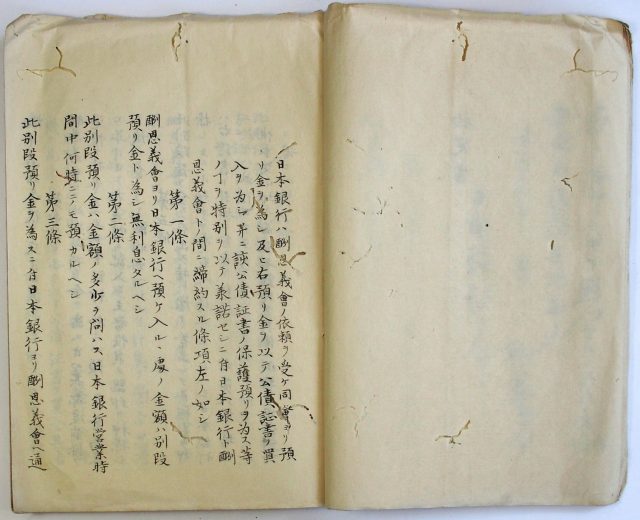 日本銀行ハ酬恩義會ノ依頼ヲ受ケ同會ヨリ預
リ金ヲ為シ及ヒ右預リ金ヲ以テ公債証書ノ買
入ヲ為シ并ニ該公債証書ノ保護預リヲ為ス等
ノヿヲ特別ヲ以テ承諾セシニ付日本銀行ト酬
恩義會トノ間ニ締約スル條項左ノ如シ
第一條
酬恩義會ヨリ日本銀行ヘ預ケ入ル、處ノ金額ハ別段
預リ金ト為シ無利息タルヘシ
第二條
此別段預リ金ハ金額ノ多少ヲ問ハス日本銀行営業時
間中何時ニテモ預カルヘシ
第三條
此別段預リ金ヲ為スニ付日本銀行ヨリ酬恩義會ヘ通